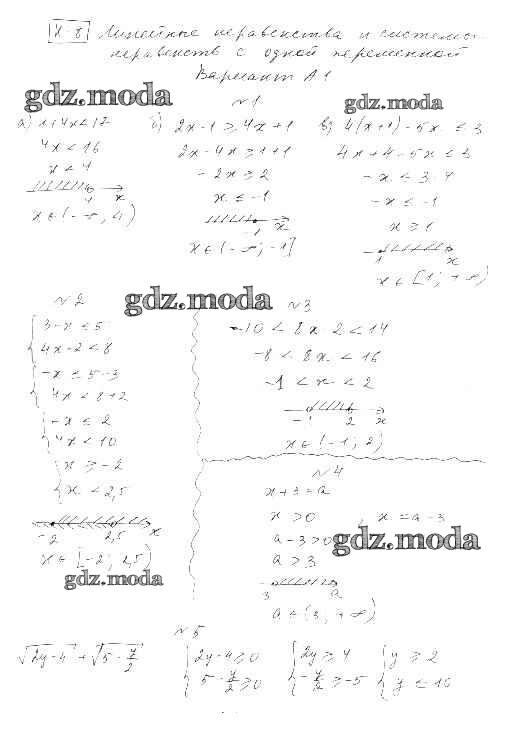 К-8 Линейные неравенства и системы
неравенств с одной переменной
Вариант А1
gdz.moda
gdz.moda
№1
а) 1+4x<17
4x<16
x<4
4 x
x∈(-∞, 4)
б) 2x-1≥4x+1
2x-4x≥1+1
-2x≥2
x≤-1
-1 x
x∈(-∞; -1]
в) 4(x+1)-5x≤3
4x+4-5x≤3
-x≤3-4
-x≤-1
x≥1
1 x
x∈[1; +∞)
gdz.moda
№2
3-x≤5
4x-2<8
-x≤5-3
4x<8+2
-x≤2
4x<10
x≥-2
x<2,5
-2 2,5 x
x∈[-2; 2,5)
gdz.moda
№3
-10<8x-2<14
-8<8x<16
-1<x<2
-1 2 x
x∈(-1; 2)
№4
x+3=a
x>0, x=a-3
a-3>0
a>3
gdz.moda
3 a
a∈(3; +∞)
№5
√(2y-4) + √(5-y/2)
2y-4≥0
5-y/2≥0
2y≥4
-y/2≥-5
y≥2
y≤10